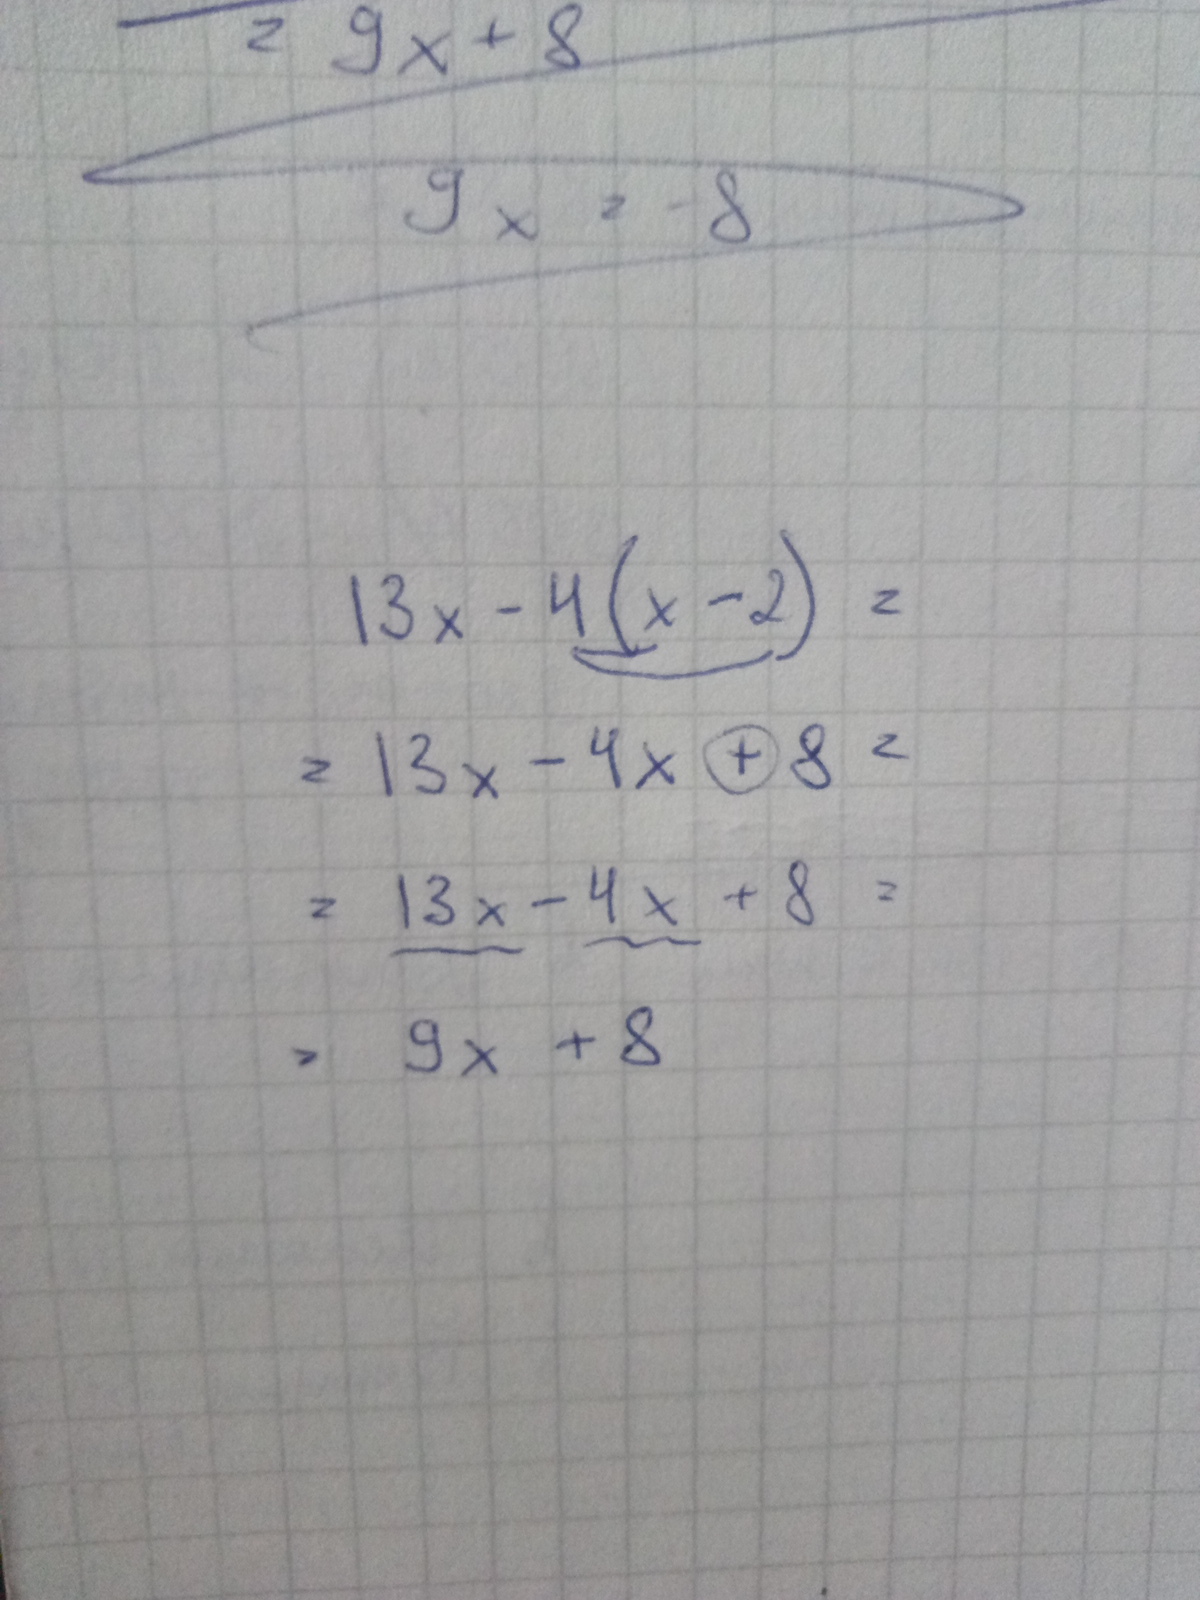 = 9x + 8
9x = -8
13x - 4(x - 2) =
= 13x - 4x + 8 =
= 13x - 4x + 8 =
= 9x + 8